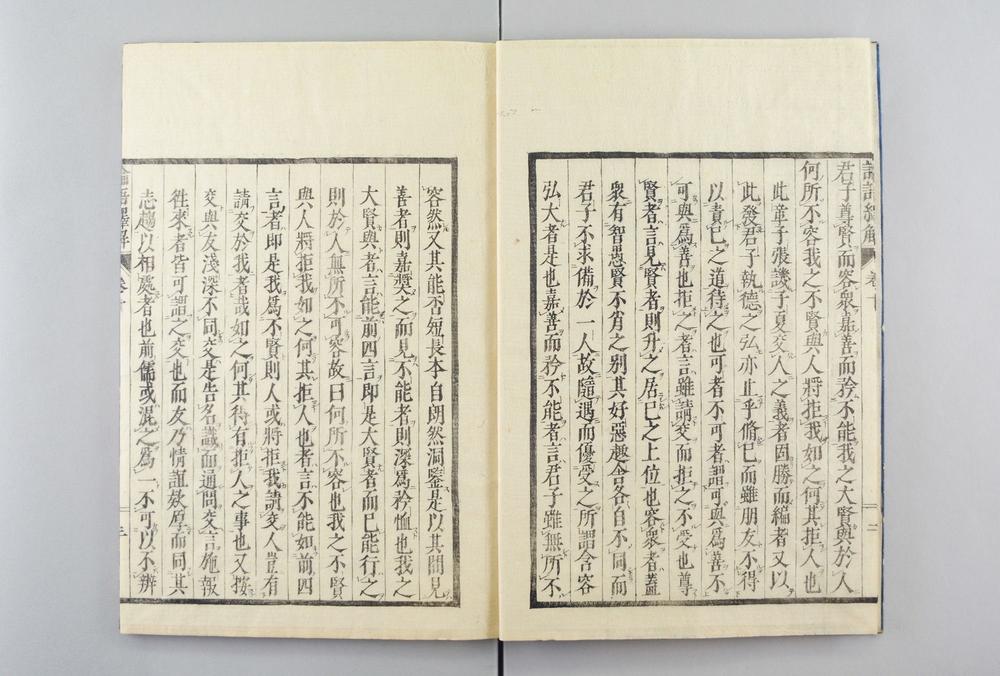 論語繹解 卷十 二
君子尊賢而容衆嘉善而矜不能我之大賢與於人
何所不容我之不賢與人將拒我如之何其拒人也
此章子張譏子夏交人之義者固勝而編者又以
此發君子執德之弘亦止乎脩己而雖朋友不得
以責己之道待之也可者不可者謂可與爲善不
可與爲善也拒之者言雖請交而拒之不受也尊
賢者言見賢者則升之居己之上位也容衆者蓋
衆有智愚賢不肖之别其好惡趣舍各自不同而
君子不求備於一人故隨遇而優受之所謂含容
弘大者是也嘉善而矜不能者言君子雖無所不
容然又其能否短長本自朗然洞鑒是以其間見
善者則嘉奬之而見不能者則深爲矜恤也我之
大賢與者言能前四言即是大賢者而已能行之
則於人無所不可容故曰何所不容也我之不賢
與人將拒我如之何其拒人也者言不能如前四
言者即是我爲不賢則人或將拒我請交人豈有
請交於我者哉如之何其待有拒人之事也又按
交與友淺深不同交是告名識面通問交言施報
徃來者皆可謂之交也而友乃情誼欵厚而同其
志趨以相處者也前儒或混之爲一不可以不辨
論語繹解 卷十 三